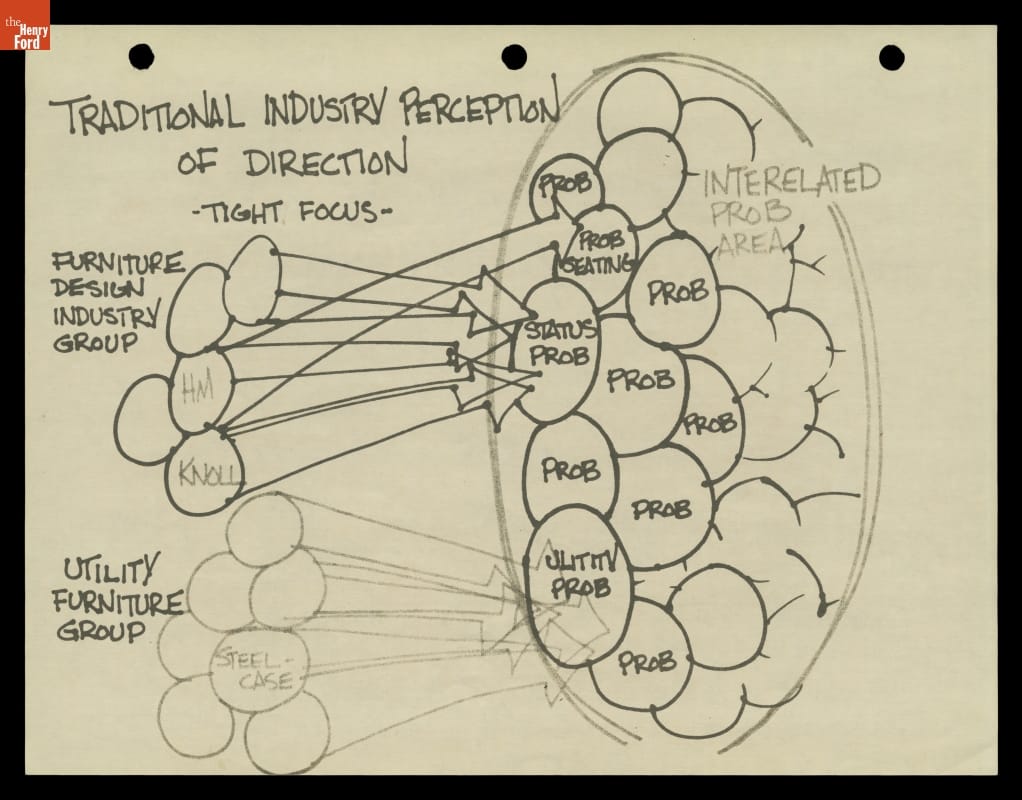 the
Henry
Ford
TRADITIONAL INDUSTRY PERCEPTION
OF DIRECTION
-TIGHT FOCUS-
FURNITURE
DESIGN
INDUSTRY
GROUP
HM
KNOLL
UTILITY
FURNITURE
GROUP
STEEL-
CASE
INTERELATED
PROB
AREA
PROB
PROB
SEATING
PROB
STATUS
PROB
PROB
PROB
PROB
PROB
ULITITY
PROB
PROB